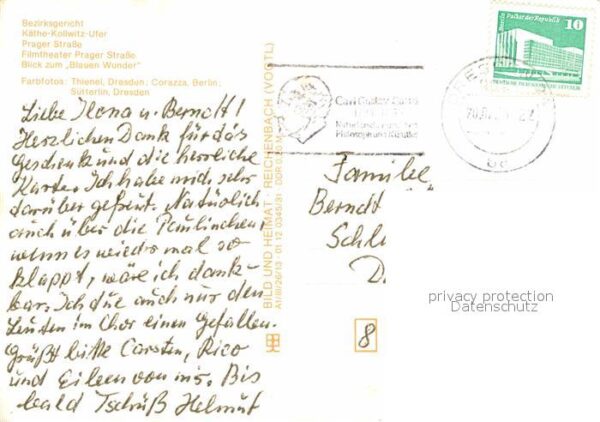 Bezirksgericht
Käthe-Kollwitz-Ufer
Prager Straße
Filmtheater Prager Straße
Blick zum „Blauen Wunder“
Farbfotos: Thienel, Dresden; Corazza, Berlin;
Sütterlin, Dresden
Liebe Ilona u. Berndt!
Herzlichen Dank für das
Geschenk und die herrliche
Karte. Ich habe mich sehr
darüber gefreut. Natürlich
auch über die
wenn es wieder mal so
klappt, wäre ich dank-
bar. Ich tue auch nur den
Leuten im Chor einen Gefallen.
Grüßt bitte Carsten, Rico
und Eileen von mir. Bis
bald Tschüß Helmut
BILD UND HEIMAT · REICHENBACH (VOGTL)
Palast der Republik
10
Carl Gustav Carus
Familie
Berndt
Schl
D.
privacy protection
Datenschutz
8